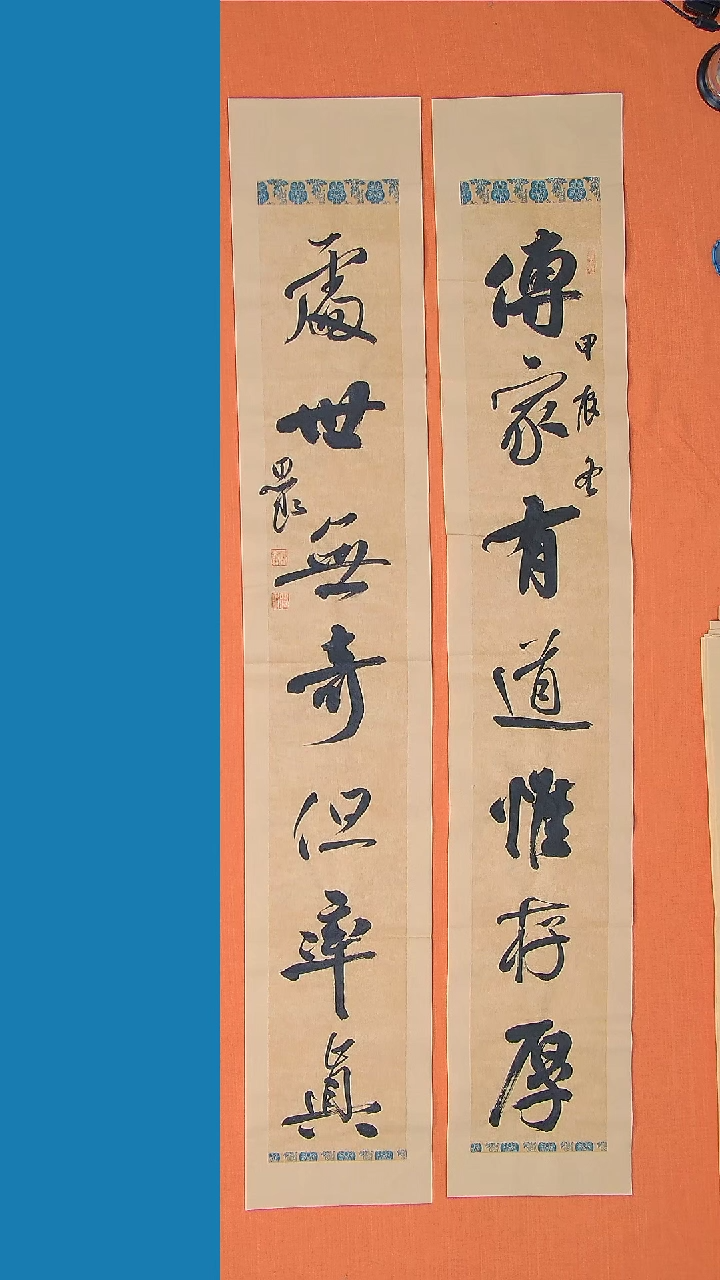 傳家有道惟存厚
甲辰冬
處世無奇但率真